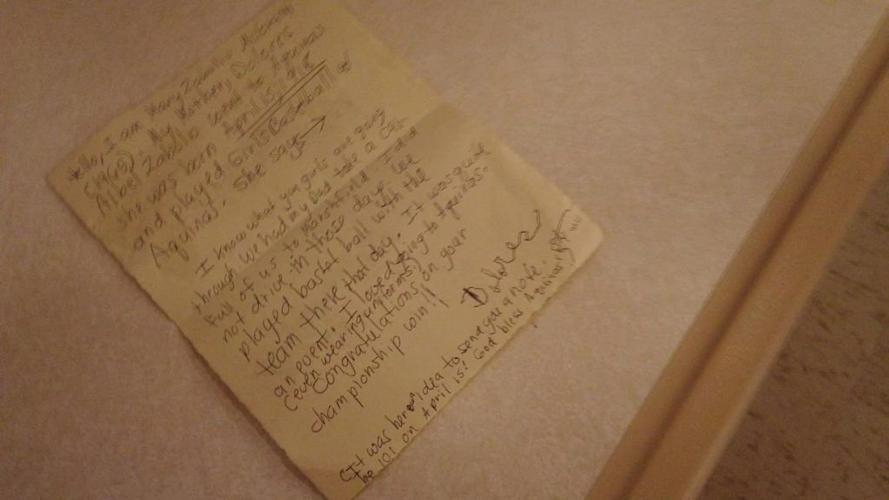 Hello, I am Mary Zabello
(1963). My Mother, Dolores
Albel Zabello went to Aquinas
she was born April 15, 1918
and played Girls Basketball @
Aquinas. She says →
I know what you girls are going
through. We had my Dad take a car
full of us to Marshfield. I did
not drive in those days. We
played basket ball with the
team there that day. It was quite
an event. I loved going to Aquinas.
(even wearing uniforms)
Congratulations on your
championship win!!
Dolores
(It was her idea to send you a note.
be 101 on April 15! God bless Aquinas!